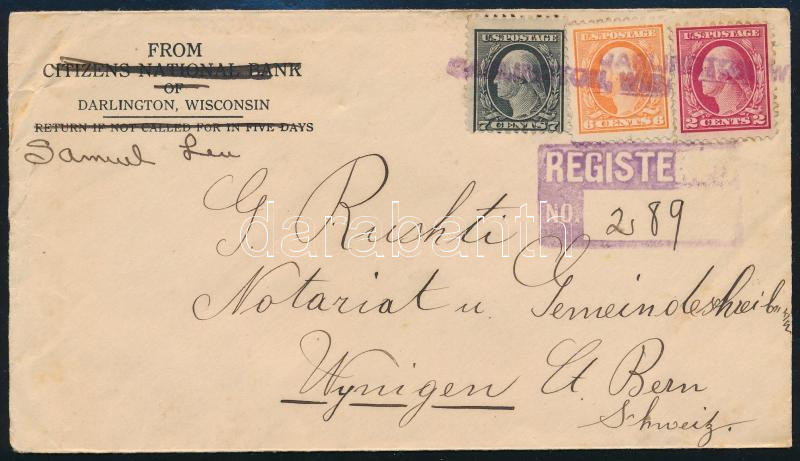 FROM
CITIZENS NATIONAL BANK
OF
DARLINGTON, WISCONSIN
RETURN IF NOT CALLED FOR IN FIVE DAYS
Samuel Leu
U.S.POSTAGE
7 CENTS 7
U.S.POSTAGE
6 CENTS 6
U.S.POSTAGE
2 CENTS 2
REGISTE
NO. 2189
G. Ruchti
Notariat u. Gemeindeschreiber
Wynigen Ct. Bern
Schweiz.
darabanth.com